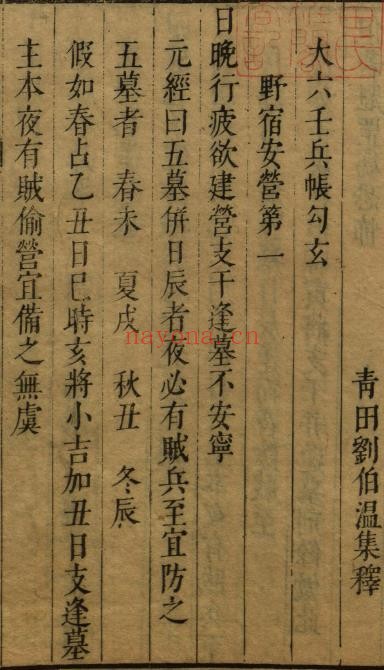 大六壬兵帳勾玄
青田劉伯温集釋
野宿安營第一
日晚行疲欲建營支干逢墓不安寧
元經曰五墓併日辰者夜必有賊兵至宜防之
五墓者 春未 夏戌 秋丑 冬辰
假如春占乙丑日巳時亥將小吉加丑日支逢墓
主本夜有賊偷營宜備之無虞
nayona.cn